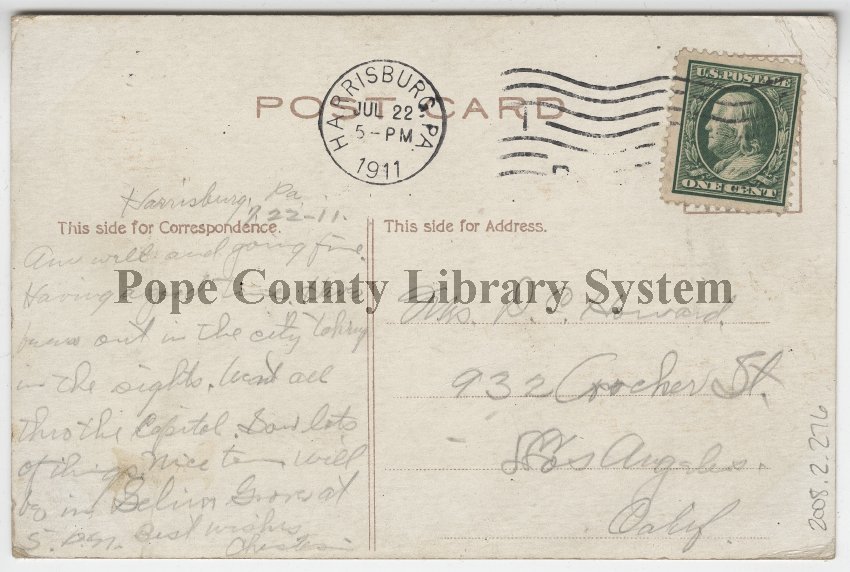 POST CARD
HARRISBURG, PA.
JUL 22
5-PM
1911
U.S. POSTAGE
ONE CENT
Harrisburg, Pa
7.22-11.
This side for Correspondence.
Am well and going fine.
Having a good time. Have
been out in the city taking
in the sights. Went all
thro the Capitol. Saw lots
of things. Nice town will
be in Selins Grove at
5. P.M. Best wishes
This side for Address.
Mrs. Howard
932 Crocker St.
Los Angeles.
Calif.
Pope County Library System
2008.2.276